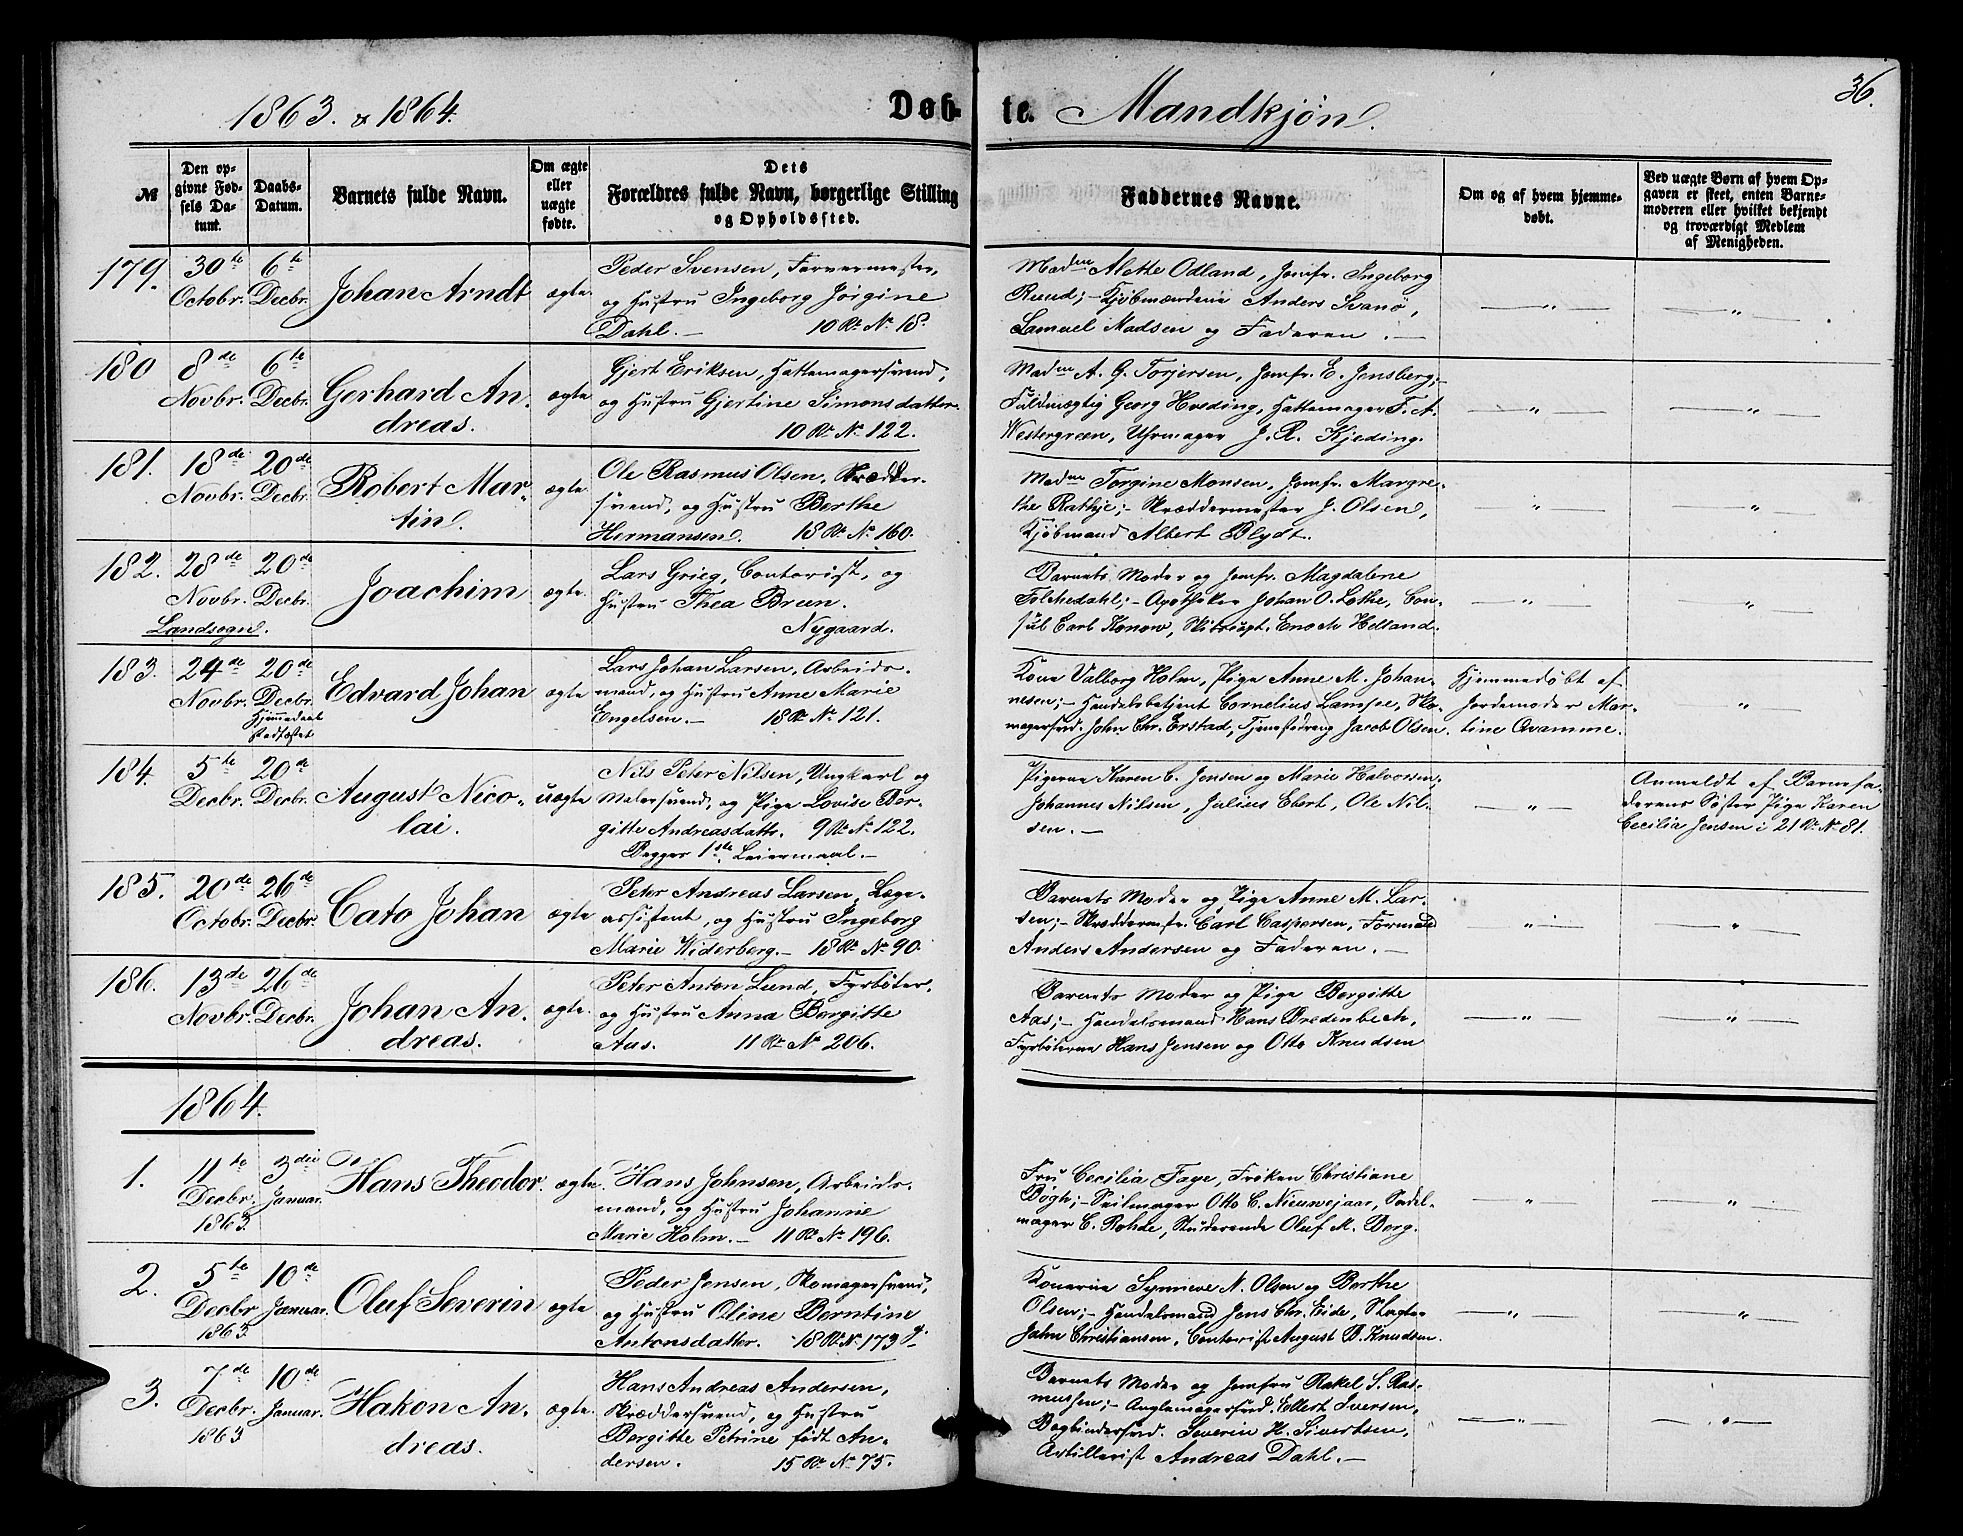 36.
1863. & 1864.
Døb-te. Mandkjøn.
№
Den opgivne Fødsels Datum.
Daabs-Datum.
Barnets fulde Navn.
Om ægte eller uægte fødte.
Dets Forældres fulde Navn, borgerlige Stilling og Opholdssted.
Faddernes Navne.
Om og af hvem hjemmedøbt.
Ved uægte Børn af hvem Opgaven er skeet, enten Barnemoderen eller hvilket bekjendt og troværdigt Medlem af Menigheden.
179.
30te Octobr.
6te Decbr.
Johan Arndt
ægte.
Peder Svensen, Farvermester,
og Hustru Ingeborg Jørgine
Dahl. — 10 R. No 18.
Madme Alette Odland, Jomfr. Ingeborg
Ruud; — Kjøbmændene Anders Svanö,
Samuel Madsen og Faderen. —
— " —
— " —
180
8de Novbr.
6te Decbr.
Gerhard An-
dreas.
ægte
Gjert Eriksen, Hattemagersvend,
og Hustru Gjertine Simonsdatter.
10 R. No 122.
Madme A. G. Torjersen, Jomfr. E. Jensberg; —
Fuldmægtig Georg Hveding, Hattemager F. A.
Westergreen, Uhrmager J. R. Kjeding.
— " —
— " —
181.
18de Novbr.
20de Decbr.
Robert Mar-
tin.
ægte.
Ole Rasmus Olsen, Skrædder-
svend, og Hustru Berthe
Hermansen. 18 R. No 160.
Madme Torgine Monsen, Jomfr. Margre-
the Rathje; — Skræddermester J. Olsen,
Kjøbmand Albert Blydt.
— " —
— " —
182.
28de Novbr.
20de Decbr.
Landsogn.
Joachim
ægte.
Lars Grieg, Contorist, og
Hustru Thea Breen.
Nygaard.
Barnets Moder og Jomfr. Magdalene
Folkedahl; — Apotheker Johan O. Lothe, Con-
sul Carl Konow, Enoch Helland.
— " —
— " —
183.
24de Novbr.
20de Decbr.
Hjemmedaab
stadfæstet
Edvard Johan
ægte
Lars Johan Larsen, Arbeids-
mand, og Hustru Anne Marie
Engelsen. — 18 R. No 121.
Kone Valborg Holm, Pige Anne M. Johan-
nesen; — Handelsbetjent Cornelius Lampe, Sko-
magersvd. John Chr. Erstad, Tjenestedreng Jacob Olsen.
Hjemmedøbt af
Jordemoder Mar-
tine Qvamme.
— " —
184.
5te Decbr.
20de Decbr.
August Nico-
lai.
uægte
Nils Peter Nilsen, Ungkarl og
Malersvend, og Pige Lovise Ber-
gitte Andreasdattr. 9 R. No 122.
Begges 1ste Leiermaal. —
Pigerne Karen C. Jensen og Marie Halvorsen;
Johannes Nilsen, Julius Ebert, Ole Nil-
sen. —
— " —
Anmeldt af Barnefa-
derens Søster Pige Karen
Cecilia Jensen i 21 R. No 81.
185.
20de Octobr.
26de Decbr.
Cato Johan
ægte
Peter Andreas Larsen, Læge-
assistent, og Hustru Ingeborg
Marie Widerberg. — 18 R. No 90.
Barnets Moder og Pige Anne M. Lar-
sen; — Skræddermstr. Carl Caspersen, Formand
Anders Andersen og Faderen. —
— " —
— " —
186.
13de Novbr.
26de Decbr.
Johan An-
dreas.
ægte.
Peter Anton Lund, Fyrbøter,
og Hustru Anna Bergitte
Aas. 11 R. No 206.
Barnets Moder og Pige Bergitte
Aas; — Handelsmand Hans Bredenbech,
Fyrbøterne Hans Jensen og Otto Knudsen
— " —
— " —
1864.
1.
11te Decbr. 1863.
3die Januar.
Hans Theodor.
ægte.
Hans Johnsen, Arbeids-
mand, og Hustru Johanne
Marie Holm. — 11 R. No 196.
Fru Cecilia Faye, Frøken Christiane
Bøgh; — Seilmager Otto C. Nieuwejaar, Sadel-
mager C. Rohde, Studerende Oluf M. Borg.
— " —
— " —
2.
5te Decbr 1863.
10de Januar.
Oluf Severin
ægte
Peder Jensen, Skomagersvend,
og Hustru Oline Berntine
Antonsdatter. 18 R. No 173 g.
Konerne Synneve N. Olsen og Berthe
Olsen; — Handelsmand Jens Chr. Eide, Slagter
John Christiansen, Contorist August B. Knudsen.
— " —
— " —
3.
7de Decbr. 1863
10de Januar.
Hakon An-
dreas.
ægte.
Hans Andreas Andersen,
Skræddersvend, og Hustru
Bergitte Petrine født An-
dersen. 15 R. No 75.
Barnets Moder og Jomfru Rakel S. Ras-
mussen; — Anglemagersvd. Ellert Iversen,
Bogbindersvd. Severin H. Sivertsen,
Artillerist Andreas Dahl. —
— " —
— " —